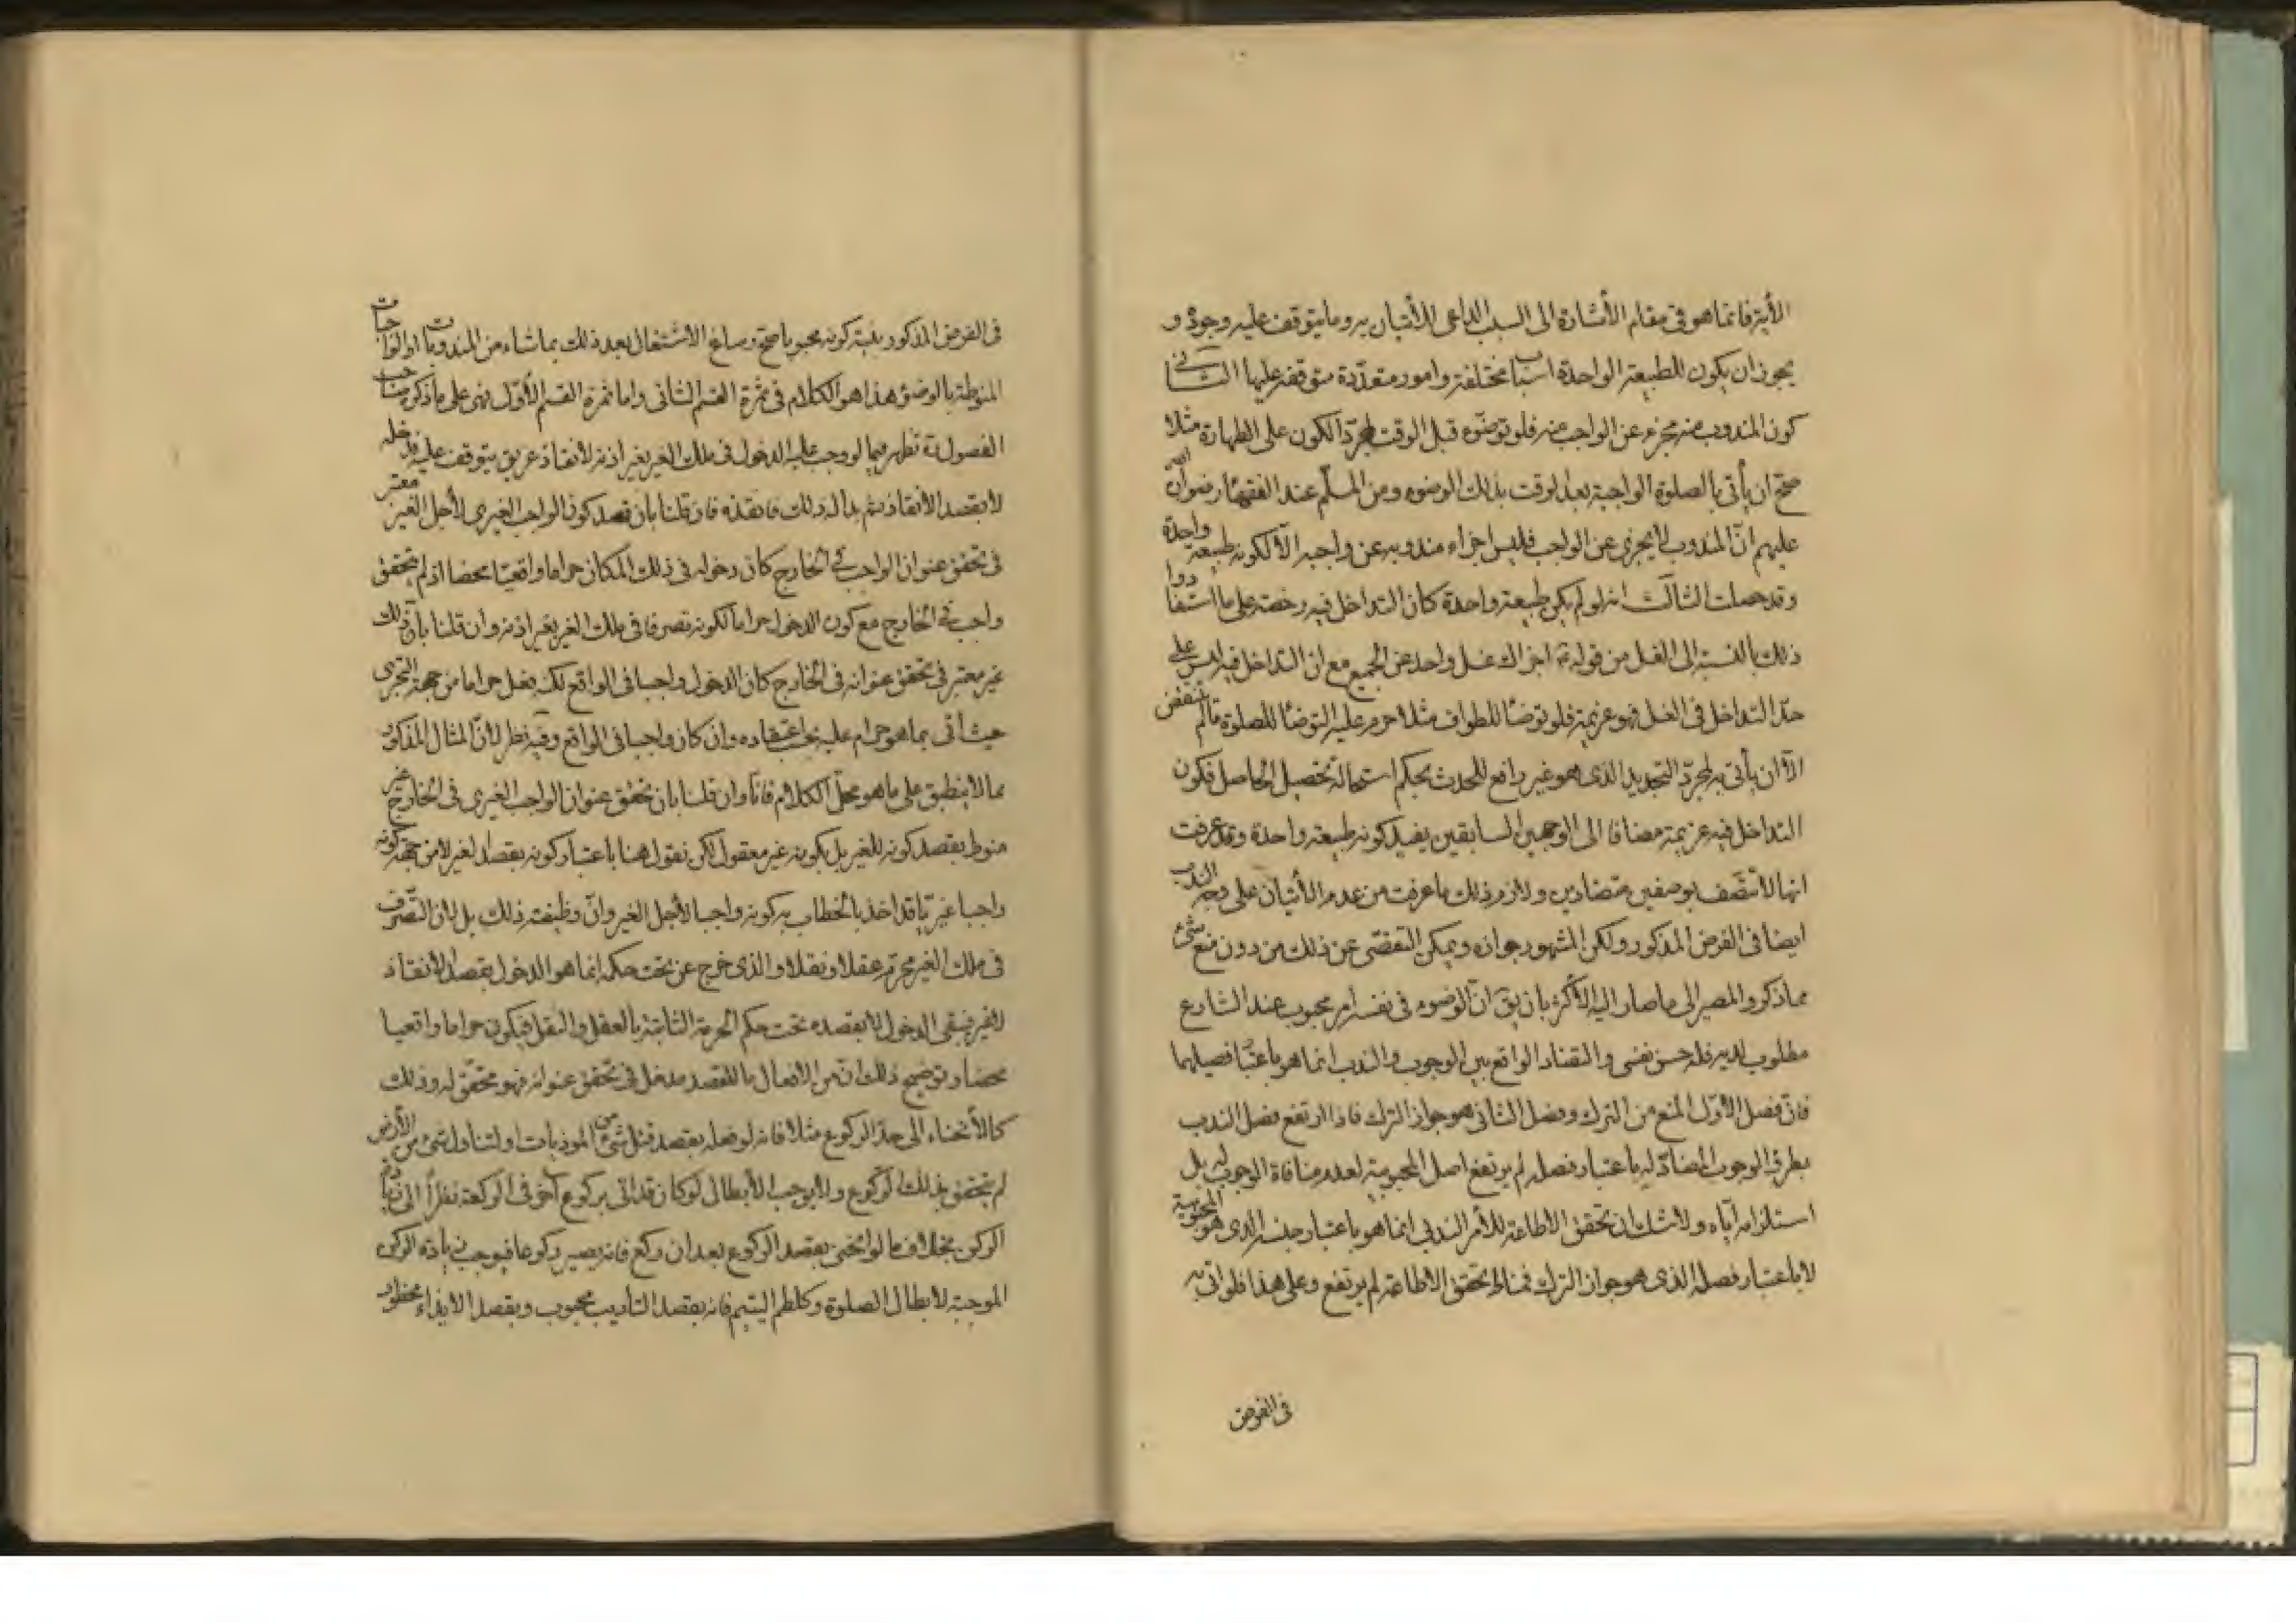 الأية فانما هو فى مقام الأشارة الى السبب الداعى للأتيان به وما يتوقف عليه وجوده و
يجوز ان يكون للطبيعة الواحدة اسبابا مختلفة وامور متعددة متوقفة عليها الثانى
كون المندوب منه مجزء عن الواجب منه فلو توضوء قبل الوقت لمجرد الكون على الطهارة مثلا
صح ان يأتى بالصلوة الواجبة بعد الوقت بذلك الوضوء ومن المسلم عند الفقهاء رضوان الله
عليهم ان المندوب لا يجزى عن الواجب فليس اجزاء مندوبه عن واجبه الا لكونه طبيعة واحدة
وقد حصلت الثالث انه لو لم يكن طبيعة واحدة كان التداخل فيه رخصة على ما استفادوا
ذلك بالنسبة الى الغسل من قوله ع اجزاك غسل واحد عن الجميع مع ان التداخل فيه ليس على
حد التداخل فى الغسل فهو عزيمة فلو توضأ للطواف مثلا حرم عليه التوضأ للصلوة ما لم ينقض
الا ان يأتى به لمجرد التجديد الذى هو غير رافع للحدث بحكم استحالة تحصيل الحاصل فكون
التداخل فيه عزيمة مضافا الى الوجهين السابقين يفيد كونه طبيعة واحدة وقد عرفت
انها لا تتصف بوصفين متضادين ولازم ذلك ما عرفت من عدم الأتيان على وجه الندب
ايضا فى الفرض المذكور ولكن المشهور جوازه ويمكن التفصى عن ذلك من دون منع شئ
مما ذكر والمصير الى ما صار اليه الأكثر بان يق ان الوضوء فى نفسه امر محبوب عند الشارع
مطلوب لديه فله حسن نفسى والتضاد الواقع بين الوجوب والندب انما هو باعتبار فصيلهما
فان فصل الأول المنع من الترك وفصل الثانى هو جواز الترك فاذا ارتفع فصل الندب
بطرو الوجوب المضاد له باعتبار فصله لم يرتفع اصل المحبوبية لعدم منافاة الوجوب له بل
استلزامه اياه ولا شك ان تحقق الاطاعة للأمر الندبى انما هو باعتبار جنسه الذى هو المحبوبية
لا باعتبار فصله الذى هو جواز الترك فمناط تحقق الاطاعة لم يرتفع وعلى هذا فلو اتى به
فى الفرض
فى الفرض المذكور بنية كونه محبوبا صح وساغ الاشتغال بعد ذلك بما شاء من المندوبات او الواجبات
المنوطة بالوضوء هذا هو الكلام فى ثمرة القسم الثانى واما ثمرة القسم الأول فهى على ما ذكره صاحب
الفصول ره تظهر فيما لو وجب عليه الدخول فى ملك الغير بغير اذنه لأنقاذ غريق يتوقف عليه فدخله
لا بقصد الأنقاذ ثم بدا له ذلك فانقذه فان قلنا بان قصد كون الواجب الغيرى لأجل الغير معتبر
فى تحقق عنوان الواجب فى الخارج كان دخوله فى ذلك المكان حراما واقعيا محضا اذ لم يتحقق
واجب فى الخارج مع كون الدخول حراما لكونه تصرفا فى ملك الغير بغير اذنه وان قلنا بان ذلك
غير معتبر فى تحقق عنوانه فى الخارج كان الدخول واجبا فى الواقع لكنه فعل حراما من جهة التجرى
حيث أتى بما هو حرام عليه بحسب اعتقاده وان كان واجبا فى الواقع وفيه نظر لأن المثال المذكور
مما لا ينطبق على ما هو محل الكلام فانا وان قلنا بان تحقق عنوان الواجب الغيرى فى الخارج غير
منوط بقصد كونه للغير بل بكونه غير معقول لكن نقول هنا باعتبار كونه بقصد الغير لا من جهة كونه
واجبا غيريا قد اخذ بالخطاب به كونه واجبا لأجل الغير وان وظيفته ذلك بل لأن التصرف
فى ملك الغير محرم عقلا ونقلا والذى خرج عن تحت حكمه انما هو الدخول بقصد الأنقاذ
فيبقى الدخول لا بقصده تحت حكم الحرمة الثابتة بالعقل والنقل فيكون حراما واقعيا
محضا وتوضيح ذلك ان من الافعال ما للقصد مدخل فى تحقق عنوانه فهو محقق له وذلك
كالأنحناء الى حد الركوع مثلا فانه لو فعله بقصد قتل شئ من الموذيات او لتناول شئ من الأرض
لم يتحقق بذلك الركوع ولا يوجب الأبطال لو كان قد اتى بركوع آخر فى الركعة نظرا الى زيادة
الركن بخلاف ما لو انحنى بقصد الركوع بعد ان ركع فانه يصير ركوعا فيوجب زيادة الركن
الموجبة لأبطال الصلوة وكلطم اليتيم فانه بقصد التأديب محبوب وبقصد الايذاء محظور